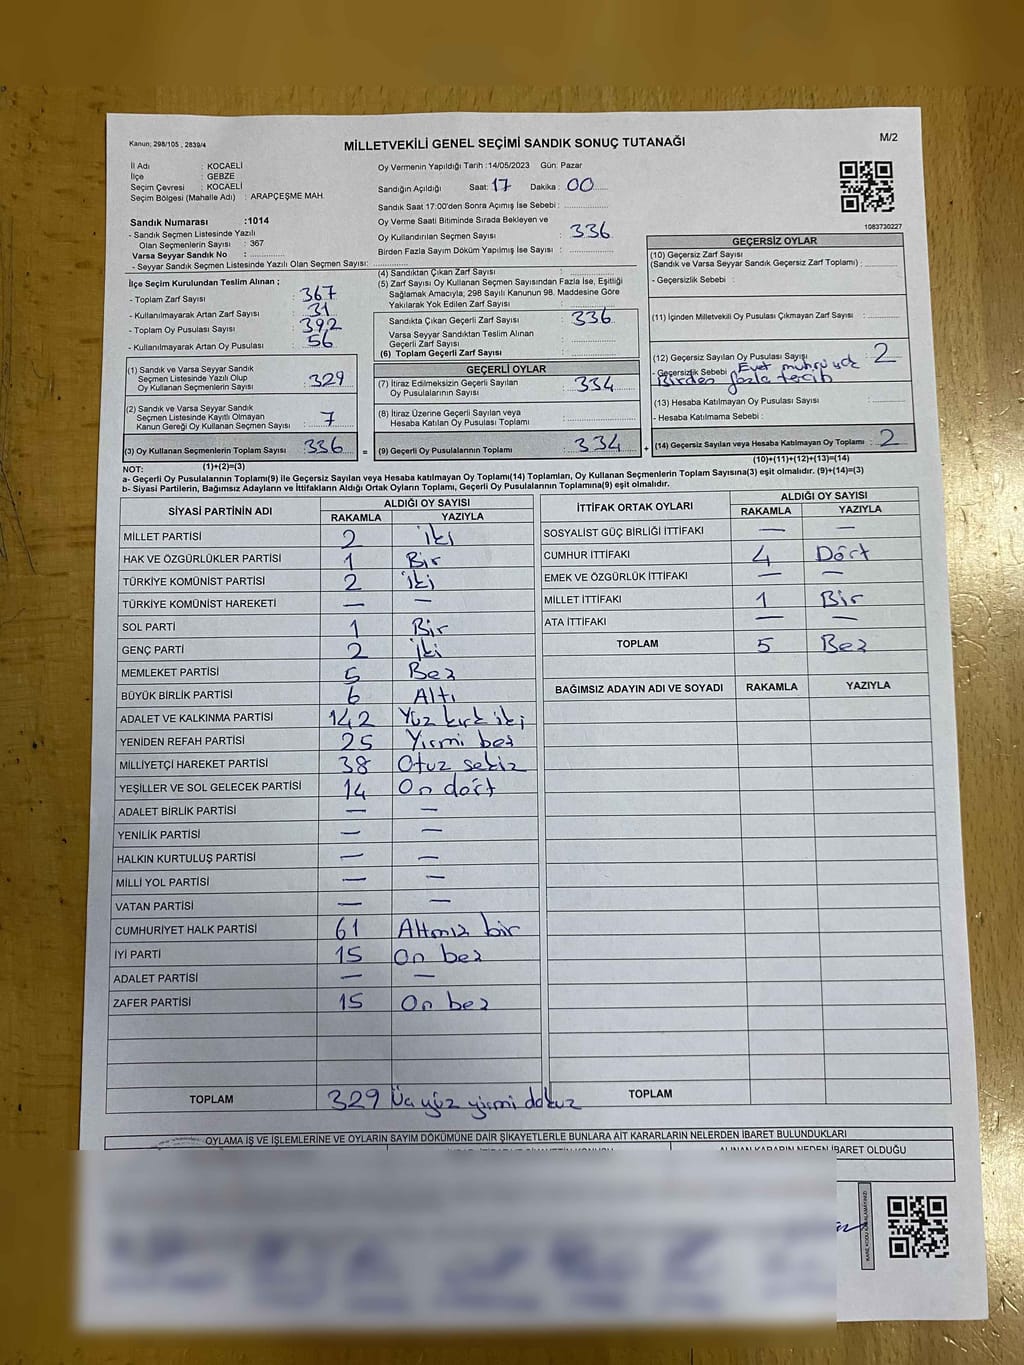 Kanun; 298/105 , 2839/4
MİLLETVEKİLİ GENEL SEÇİMİ SANDIK SONUÇ TUTANAĞI
M/2
İl Adı : KOCAELİ
İlçe : GEBZE
Seçim Çevresi : KOCAELİ
Seçim Bölgesi (Mahalle Adı) : ARAPÇEŞME MAH.
Sandık Numarası :1014
- Sandık Seçmen Listesinde Yazılı
Olan Seçmenlerin Sayısı : 367
Varsa Seyyar Sandık No :
- Seyyar Sandık Seçmen Listesinde Yazılı Olan Seçmen Sayısı:
Oy Vermenin Yapıldığı Tarih :14/05/2023 Gün: Pazar
Sandığın Açıldığı Saat: 17 Dakika : 00
Sandık Saat 17:00'den Sonra Açımış İse Sebebi :
Oy Verme Saati Bitiminde Sırada Bekleyen ve
Oy Kullandırılan Seçmen Sayısı : 336
Birden Fazla Sayım Döküm Yapılmış İse Sayısı :
1083730227
İlçe Seçim Kurulundan Teslim Alınan ;
- Toplam Zarf Sayısı : 367
- Kullanılmayarak Artan Zarf Sayısı : 31
- Toplam Oy Pusulası Sayısı : 392
- Kullanılmayarak Artan Oy Pusulası : 56
(1) Sandık ve Varsa Seyyar Sandık
Seçmen Listesinde Yazılı Olup
Oy Kullanan Seçmenlerin Sayısı : 329
(2) Sandık ve Varsa Seyyar Sandık
Seçmen Listesinde Kayıtlı Olmayan
Kanun Gereği Oy Kullanan Seçmen Sayısı : 7
(3) Oy Kullanan Seçmenlerin Toplam Sayısı : 336
(1)+(2)=(3)
(4) Sandıktan Çıkan Zarf Sayısı :
(5) Zarf Sayısı Oy Kullanan Seçmen Sayısından Fazla İse, Eşitliği
Sağlamak Amacıyla, 298 Sayılı Kanunun 98. Maddesine Göre
Yakılarak Yok Edilen Zarf Sayısı :
Sandıkta Çıkan Geçerli Zarf Sayısı : 336
Varsa Seyyar Sandıktan Teslim Alınan
Geçerli Zarf Sayısı :
(6) Toplam Geçerli Zarf Sayısı :
GEÇERLİ OYLAR
(7) İtiraz Edilmeksizin Geçerli Sayılan
Oy Pusulalarının Sayısı : 334
(8) İtiraz Üzerine Geçerli Sayılan veya
Hesaba Katılan Oy Pusulası Toplamı :
= (9) Geçerli Oy Pusulalarının Toplamı : 334
GEÇERSİZ OYLAR
(10) Geçersiz Zarf Sayısı
(Sandık ve Varsa Seyyar Sandık Geçersiz Zarf Toplamı) :
- Geçersizlik Sebebi :
(11) İçinden Milletvekili Oy Pusulası Çıkmayan Zarf Sayısı :
(12) Geçersiz Sayılan Oy Pusulası Sayısı : 2
- Geçersizlik Sebebi : Evet
Birden fazla tercih
(13) Hesaba Katılmayan Oy Pusulası Sayısı :
- Hesaba Katılmama Sebebi :
+ (14) Geçersiz Sayılan veya Hesaba Katılmayan Oy Toplamı : 2
(10)+(11)+(12)+(13)=(14)
NOT:
a- Geçerli Oy Pusulalarının Toplamı(9) İle Geçersiz Sayılan veya Hesaba katılmayan Oy Toplamı(14) Toplamları, Oy Kullanan Seçmenlerin Toplam Sayısına(3) eşit olmalıdır. (9)+(14)=(3)
b- Siyasi Partilerin, Bağımsız Adayların ve İttifakların Aldığı Ortak Oyların Toplamı, Geçerli Oy Pusulalarının Toplamına(9) eşit olmalıdır.
SİYASİ PARTİNİN ADI ALDIĞI OY SAYISI
RAKAMLA YAZIYLA
MİLLET PARTİSİ 2 iki
HAK VE ÖZGÜRLÜKLER PARTİSİ 1 Bir
TÜRKİYE KOMÜNİST PARTİSİ 2 iki
TÜRKİYE KOMÜNİST HAREKETİ — —
SOL PARTİ 1 Bir
GENÇ PARTİ 2 iki
MEMLEKET PARTİSİ 5 Beş
BÜYÜK BİRLİK PARTİSİ 6 Altı
ADALET VE KALKINMA PARTİSİ 142 Yüz kırk iki
YENİDEN REFAH PARTİSİ 25 Yirmi beş
MİLLİYETÇİ HAREKET PARTİSİ 38 Otuz sekiz
YEŞİLLER VE SOL GELECEK PARTİSİ 14 On dört
ADALET BİRLİK PARTİSİ — —
YENİLİK PARTİSİ — —
HALKIN KURTULUŞ PARTİSİ — —
MİLLİ YOL PARTİSİ — —
VATAN PARTİSİ — —
CUMHURİYET HALK PARTİSİ 61 Altmış bir
İYİ PARTİ 15 On beş
ADALET PARTİSİ — —
ZAFER PARTİSİ 15 On beş
TOPLAM 329 Üç yüz yirmi dokuz
İTTİFAK ORTAK OYLARI ALDIĞI OY SAYISI
RAKAMLA YAZIYLA
SOSYALİST GÜÇ BİRLİĞİ İTTİFAKI — —
CUMHUR İTTİFAKI 4 Dört
EMEK VE ÖZGÜRLÜK İTTİFAKI — —
MİLLET İTTİFAKI 1 Bir
ATA İTTİFAKI — —
TOPLAM 5 Beş
BAĞIMSIZ ADAYIN ADI VE SOYADI RAKAMLA YAZIYLA
TOPLAM
OYLAMA İŞ VE İŞLEMLERİNE VE OYLARIN SAYIM DÖKÜMÜNE DAİR ŞİKAYETLERLE BUNLARA AİT KARARLARIN NELERDEN İBARET BULUNDUKLARI
ALINAN KARARIN NEDEN İBARET OLDUĞU